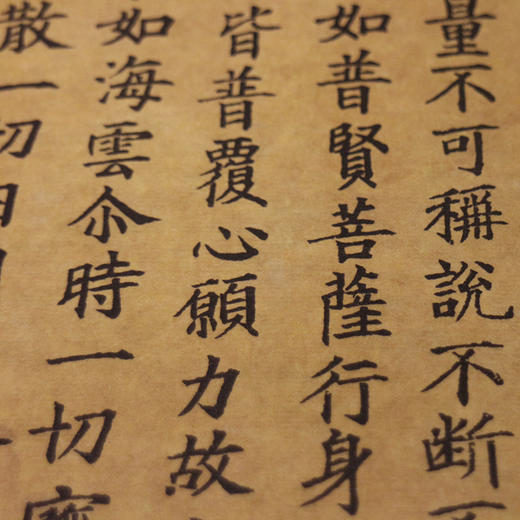 量不可稱說不斷
如普賢菩薩行身
皆普覆心願力故
如海雲尒時一切寶
散一切